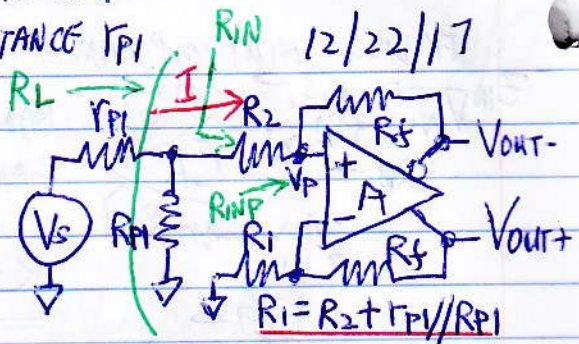 TANCE rp1
RIN
12/22/17
RL
I
rp1
R2
Rf
VOUT-
VP
+
A
-
RINP
Vs
RP1
R1
Rf
VOUT+
R1=R2+rp1//RP1